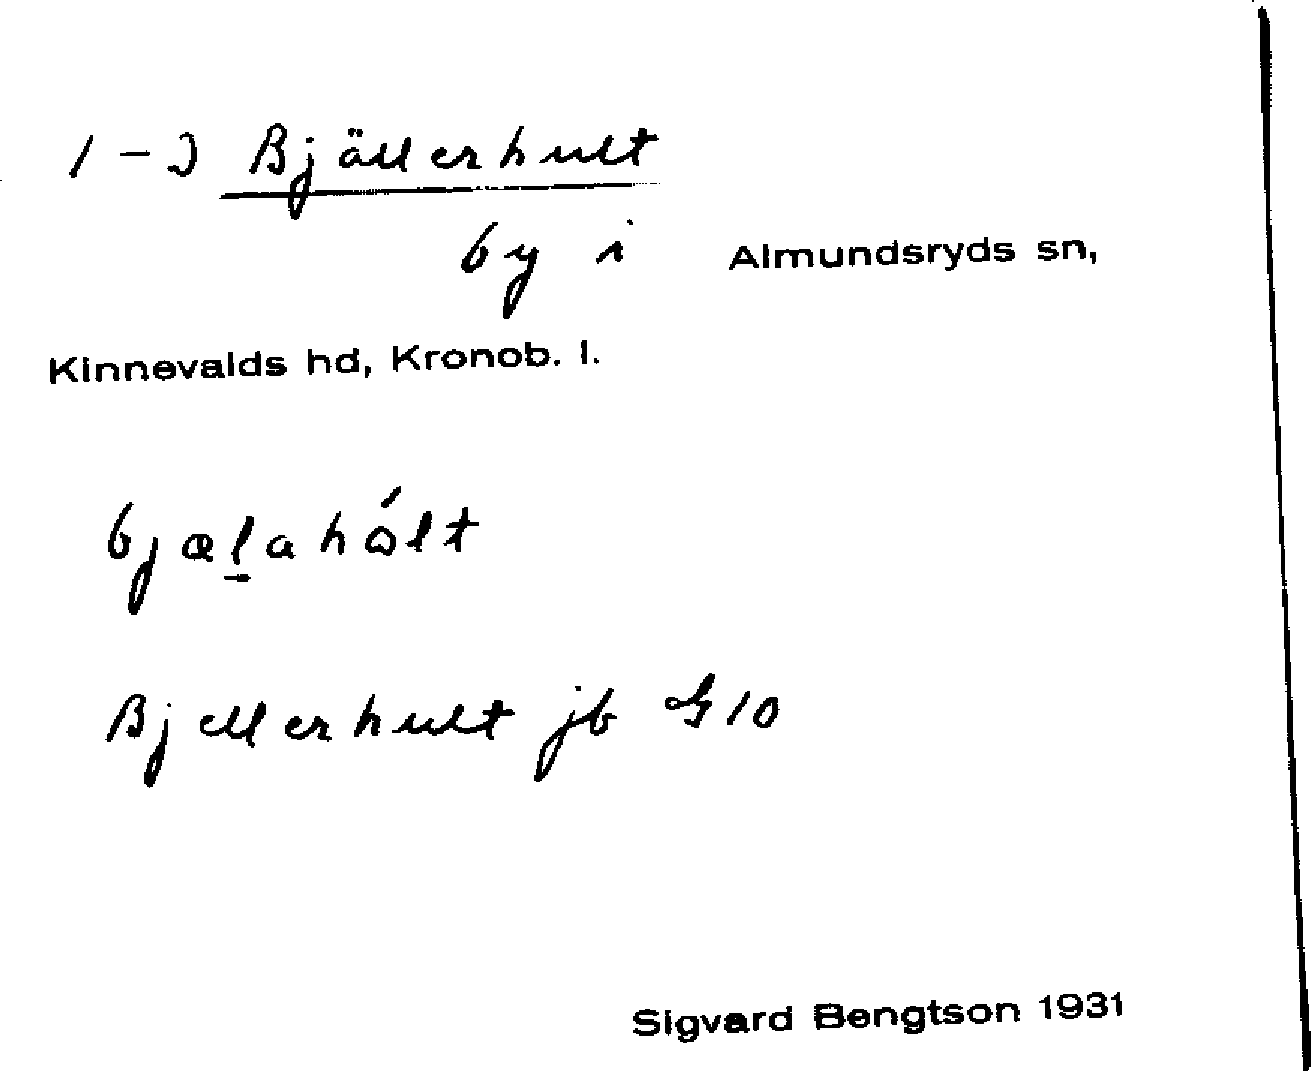 1-3 Bjällerhult
by i Almundsryds sn,
Kinnevalds hd, Kronob. l.
bjæl̠ahólt
Bjellerhult jb G10
Sigvard Bengtson 1931